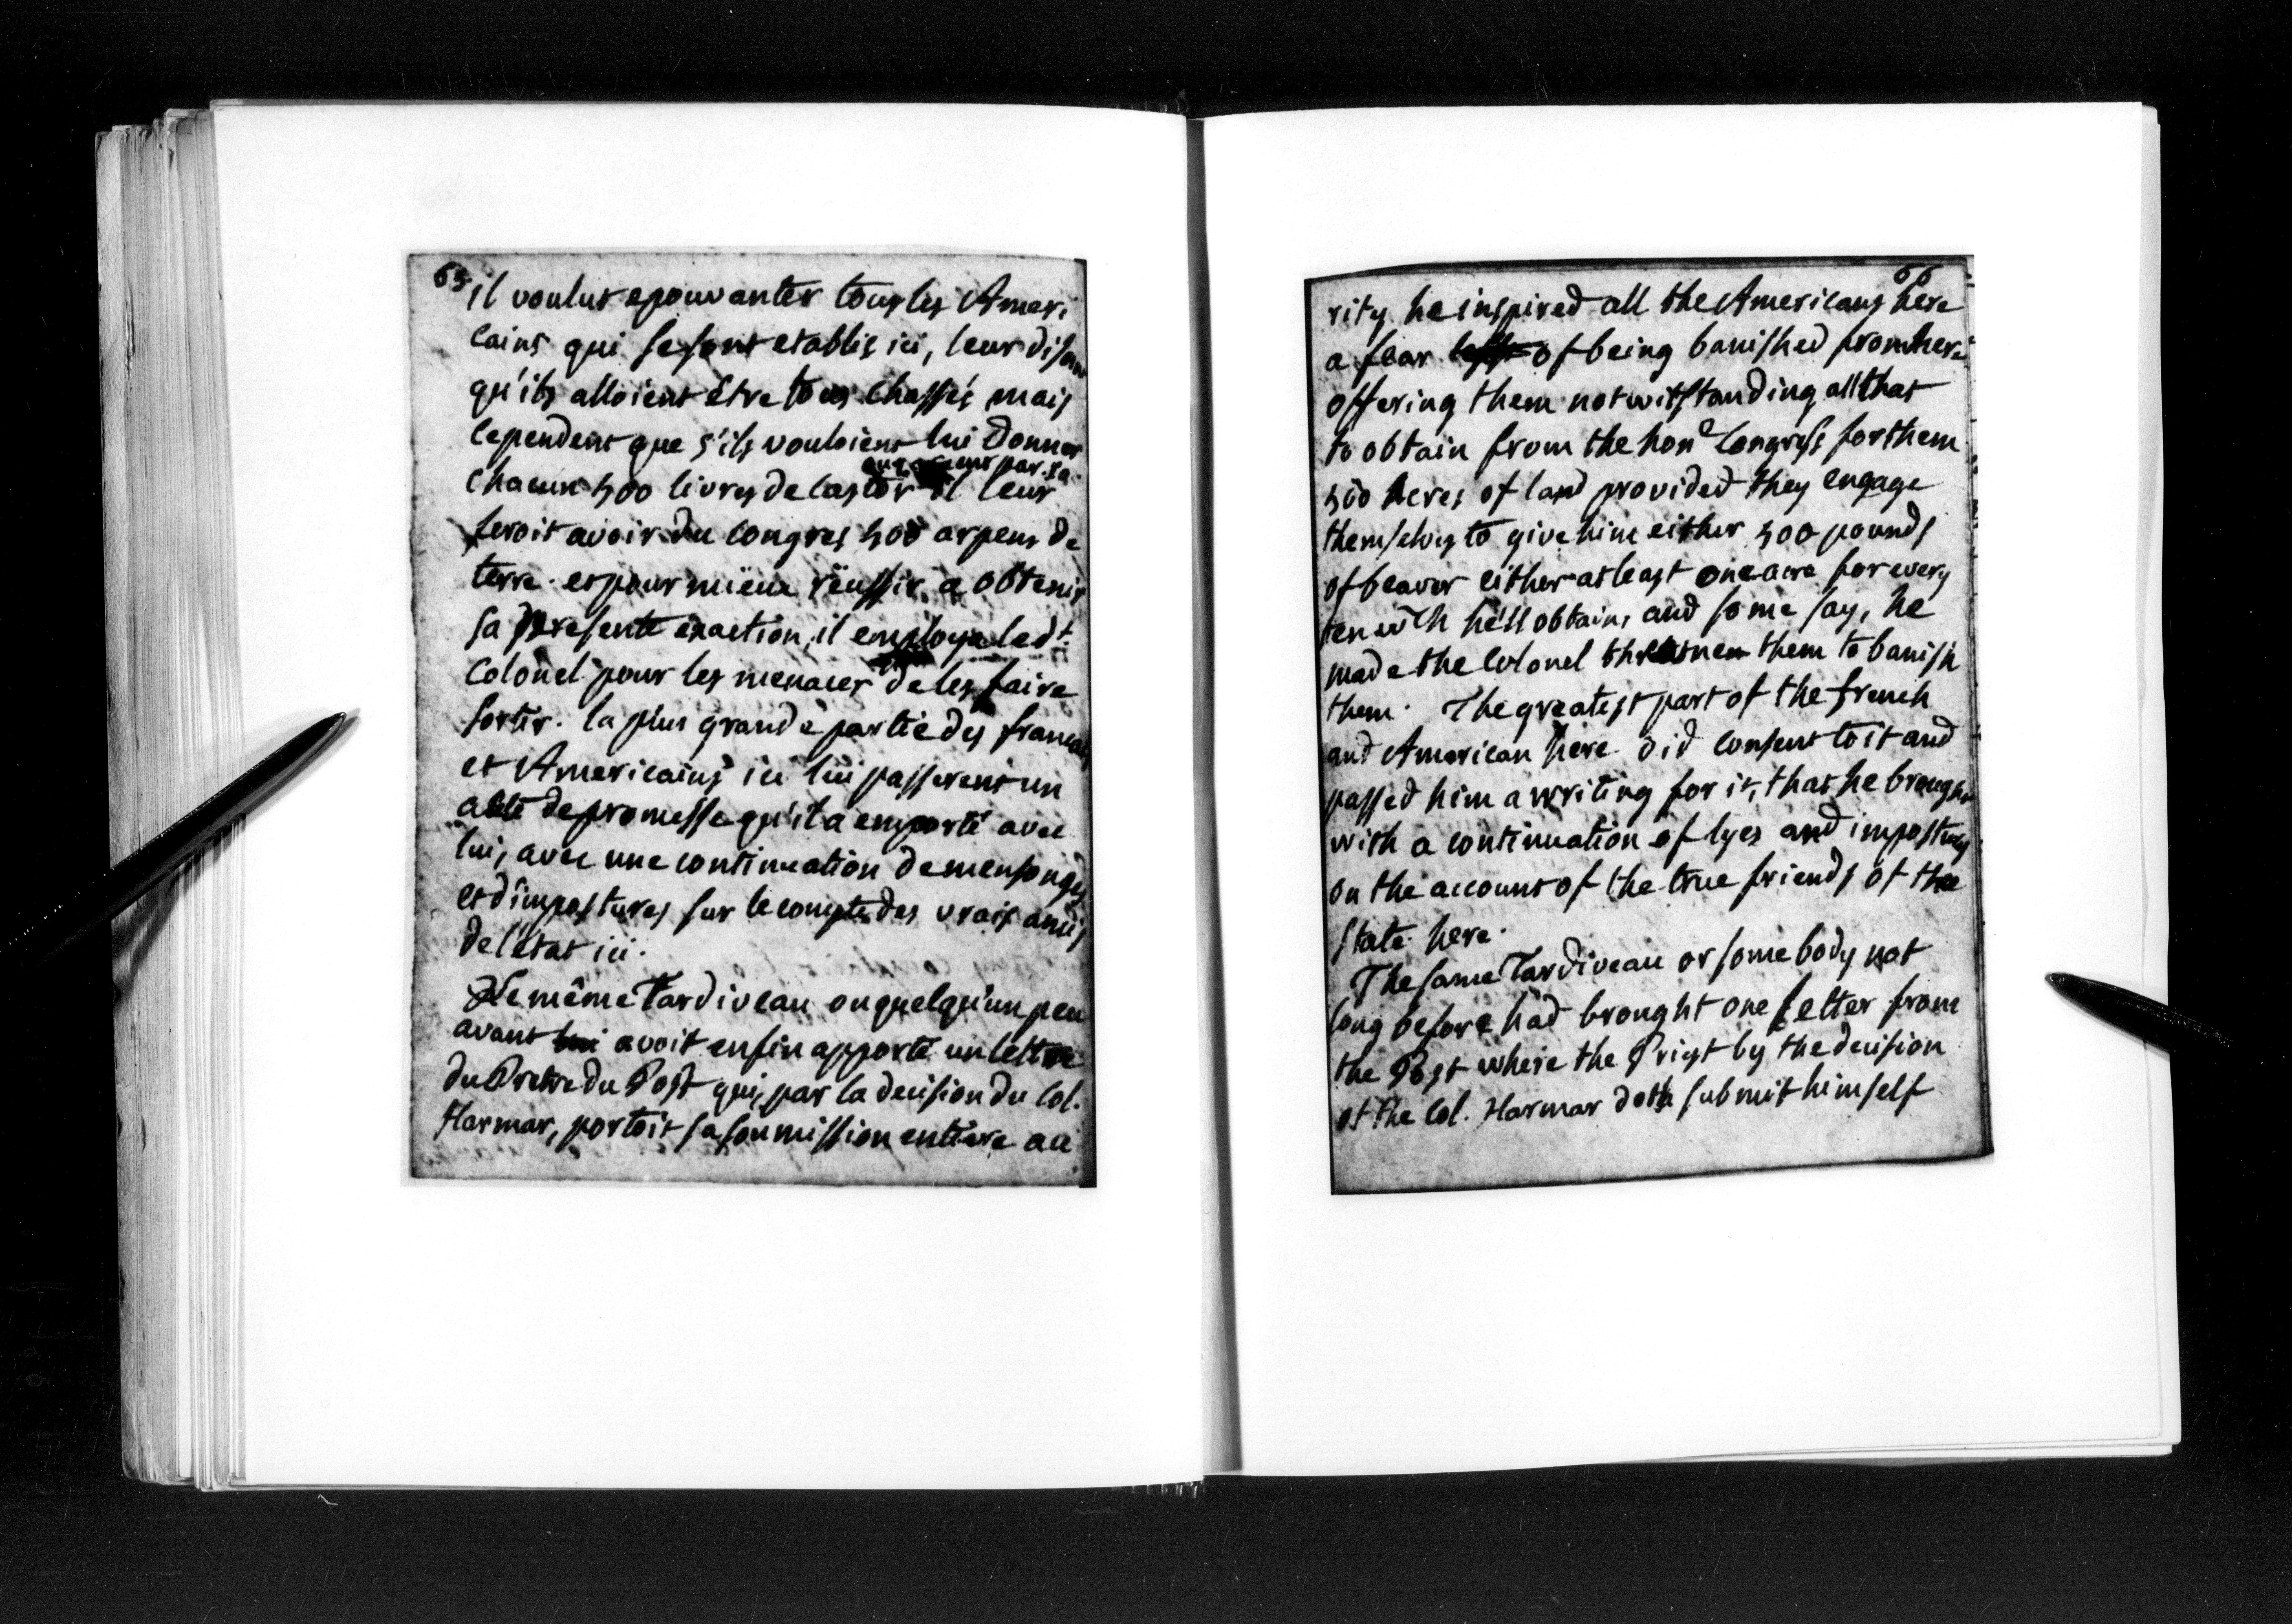 65.
il voulut epouvanter tous les Ameri
cains qui se sont etablis ici, leur disant
qu'ils alloient être tous chassés mais
cependent que s'ils vouloient lui donner
par
chacun 500 livres de castor il leur
feroit avoir du congres 500 arpens de
terre. et pour mieux rëussir a obtenir
sa presente exaction, il employa led.t
Colonel pour les menacer de les faire
sortir. la plus grande partie des francais
et Americains ici lui passerent un
acte de promesse qu'il a emporté avec
lui, avec une continuation de mensonges
et d'impostures sur le compte des vrais amis
de l'état ici.
Le même Tardiveau ou quelqu'un peu
avant lui avoit enfin apporté un lettre
du Pretre du Post qui, par la decision du Col.
Harmar, portoit sa soumission entiere au
66
rity he inspired all the Americans here
a fear of being banished from here
offering them notwitstanding all that
to obtain from the hon.e Congress for them
500 Acres of land provided they engage
themselves to give him either 500 pounds
of beaver either at least one acre for every
ten wch he'll obtain, and some say, he
made the Colonel threatnen them to banish
them. The greatest part of the french
and American here did consent to it and
passed him a writing for it, that he brought
with a continuation of lyes and impostures
on the account of the true friends of the
state here.
The same Tardiveau or some body not
long before had brought one letter from
the Post where the Priest by the decision
of the Col. Harmar doth submit himself